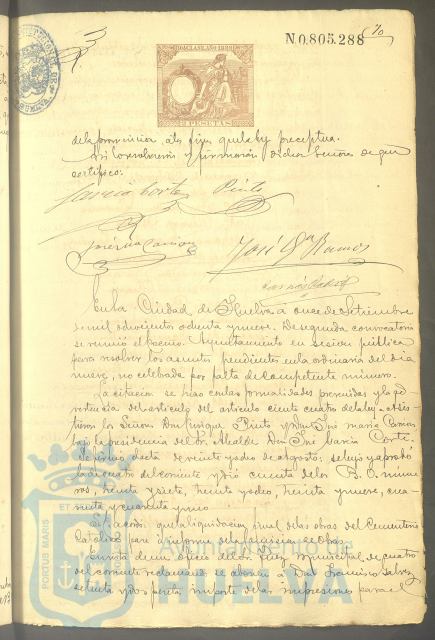 N.0.805.288
70
10ª CLASE AÑO 1889
2 PESETAS
de la provincia á los fines que la ley preceptua.
Asi lo resolvieron y firmaron dichos Señores de que
certifico:
Garcia Corte Pinto
José Mª Carrion José Dª Ramos
En la Ciudad de Huelva á once de Setiembre
de mil ochocientos ochenta y nueve. De segunda convocatoria
se reunió el Excmo. Ayuntamiento en sesion pública
para resolver los asuntos pendientes en la ordinaria del dia
nueve, no celebrada por falta de competente número.
La citacion se hizo con las formalidades prevenidas y la ad
vertencia del articulo del articulo ciento cuatro de la ley. Asis
tieron los Señores Don Enrique Pinto y Don José Maria
bajo la presidencia del Sr. Alcalde Don José Garcia Corte.
de veinte y ocho de Agosto, se leyó y aprobó
la de cuatro del corriente y dió cuenta de los B. O. núme
ros, treinta y siete, treinta y ocho, treinta y nueve, cua
renta y cuarenta y uno
Se acordó que la liquidacion final de las obras del Cementerio
Católico pase á informe de la Comision de Obras.
En vista de un oficio del Sr. Juez Municipal de cuatro
del corriente reclamando se abonen á Don Francisco
setenta y dos pesetas importe de las impresiones para el
PORTUS MARIS
HUELVA